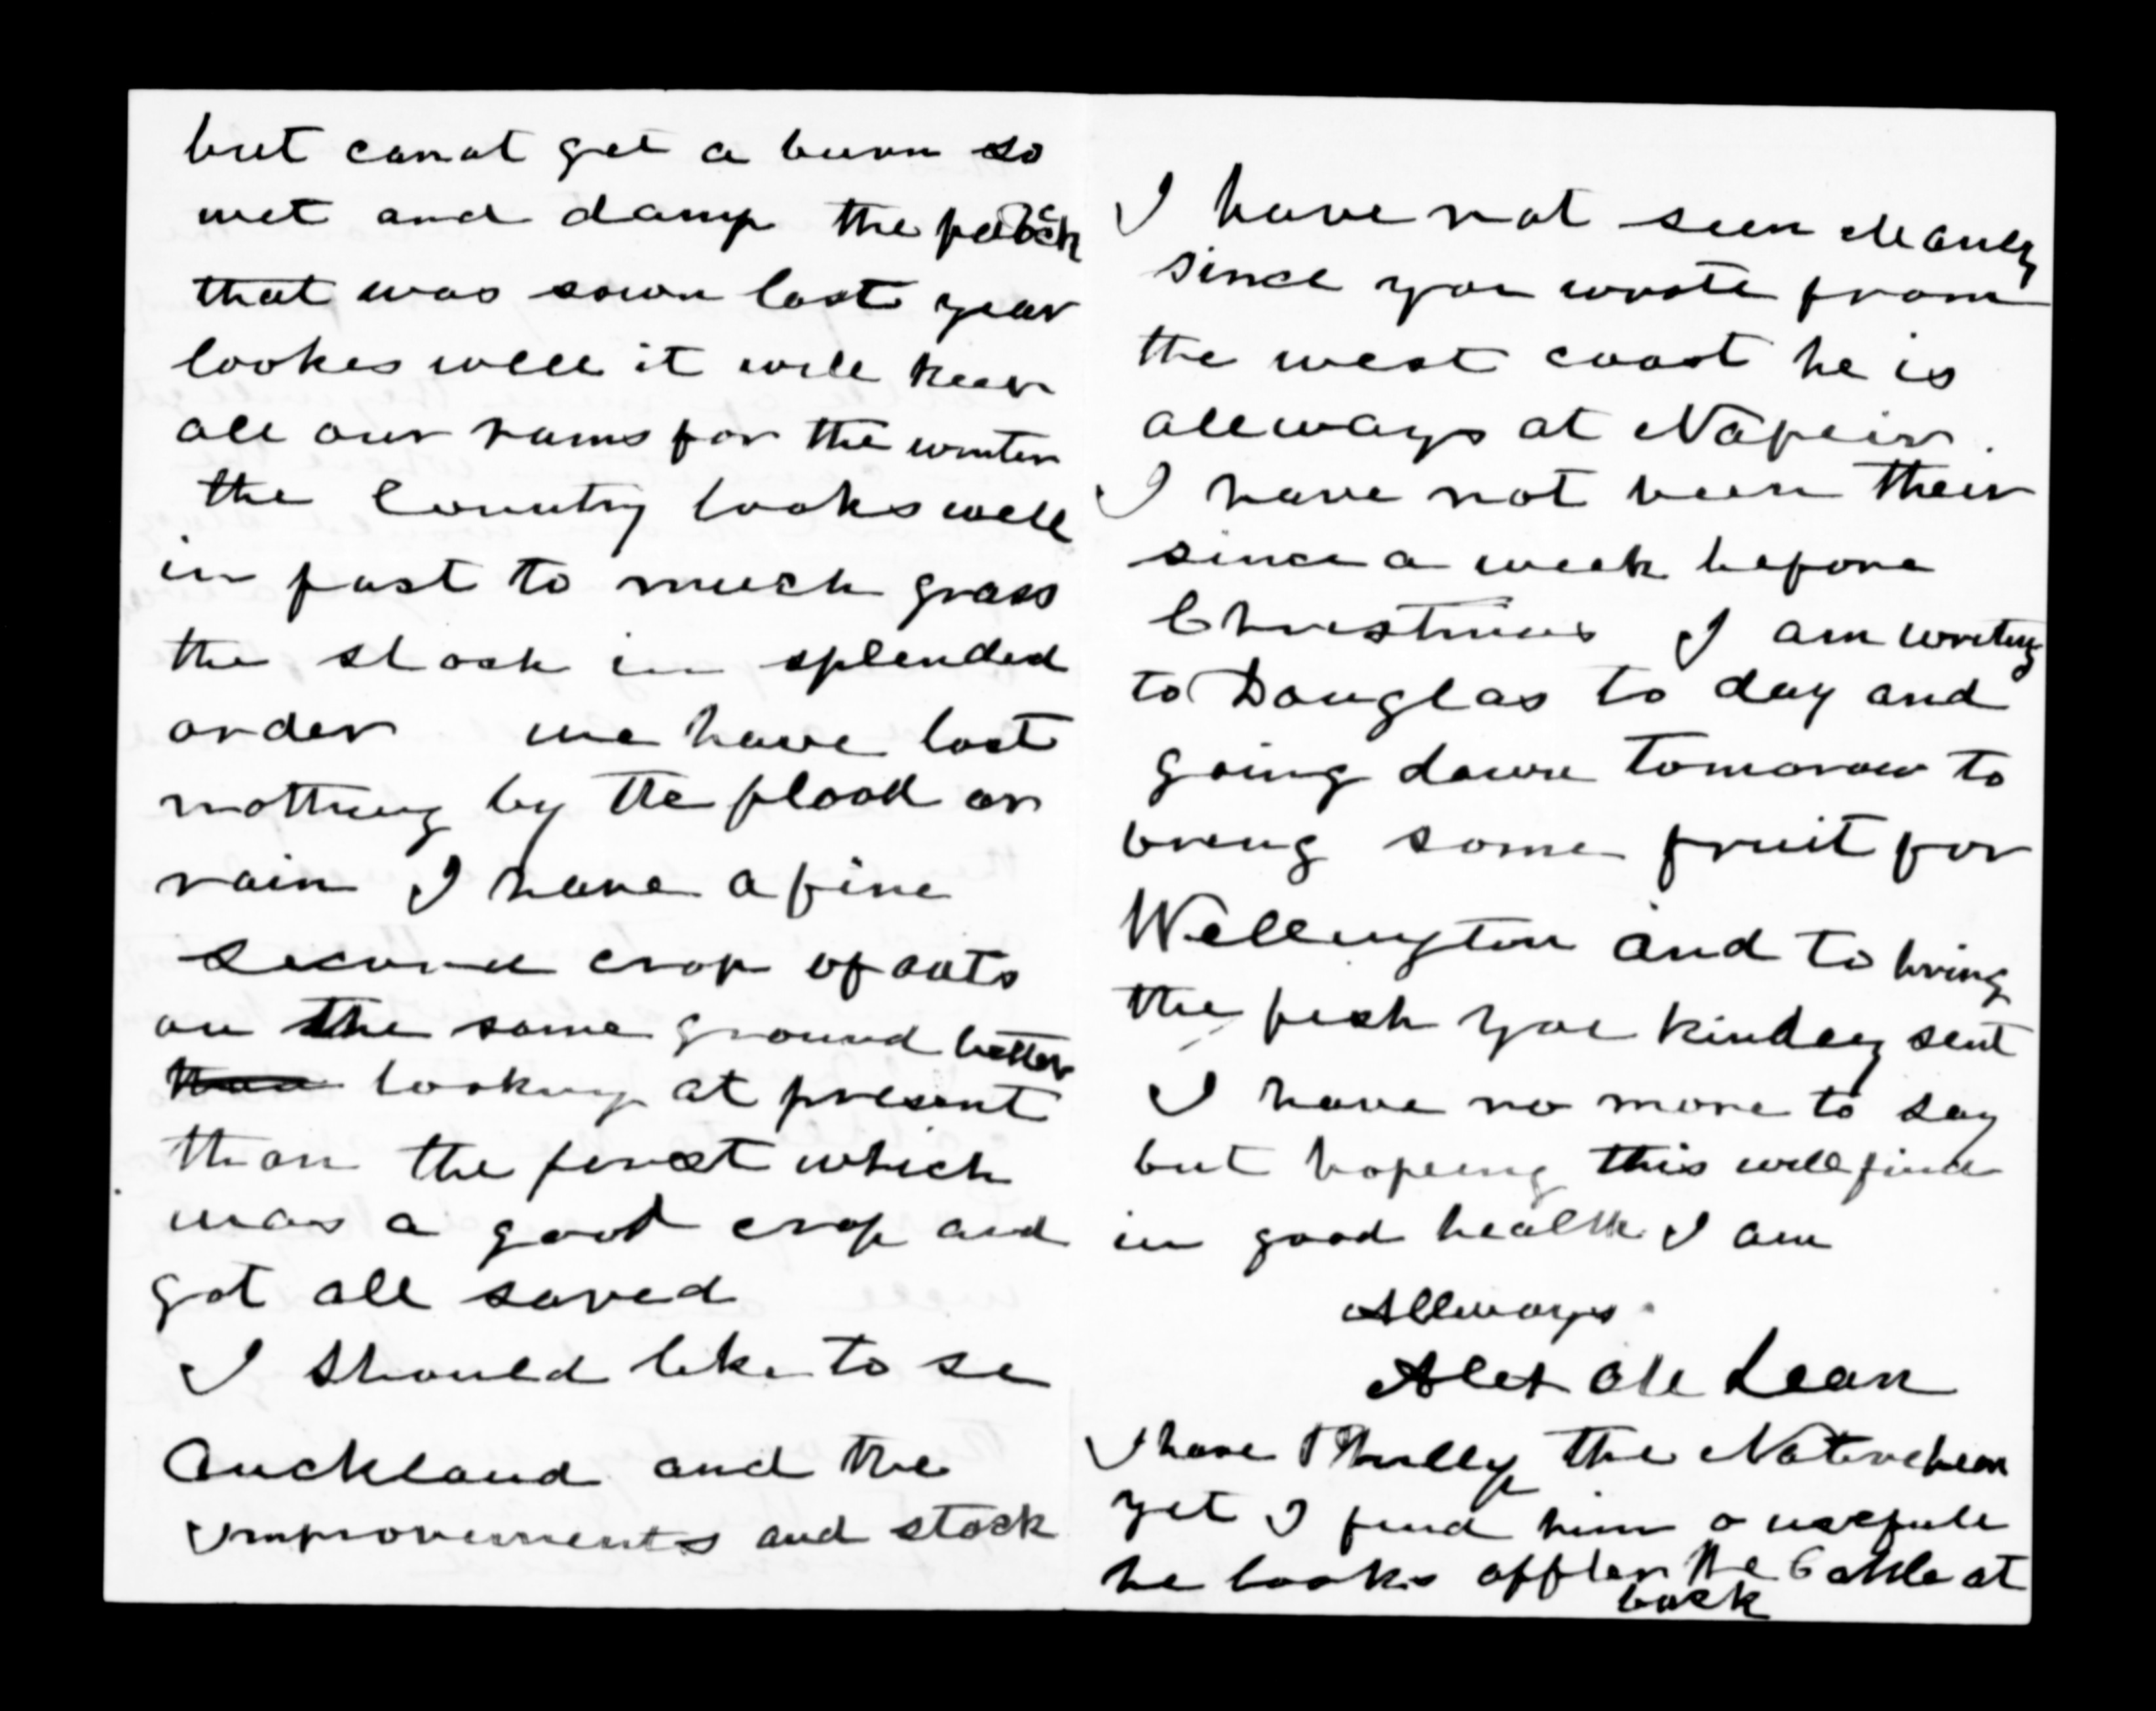 but canat get a burn so
wet and damp the patch
that was sown last year
lookes well it will keep
all our rams for the winter
the Country looks well
in fast to much grass
the stock in splended
order we have lost
nothing by the flood or
rain I have a fine
second crop of oats
on the same ground better
looking at present
than the first which
was a good crop and
got all saved
I should like to se
Auckland and the
improvements and stock
I have not seen Manly
since you wrote from
the west coast he is
allways at Napeir.
I have not been their
since a week before
Christmas I am writing
to Douglas to day and
going down tomorow to
breng some fruit for
Wellington and to bring
the fesh you kindley sent
I have no more to say
but hopeing this will find
in good health I am
Allways
Alex McLean
I have the Native here
yet I find him a usefule
he looks affter the Cattle at
back